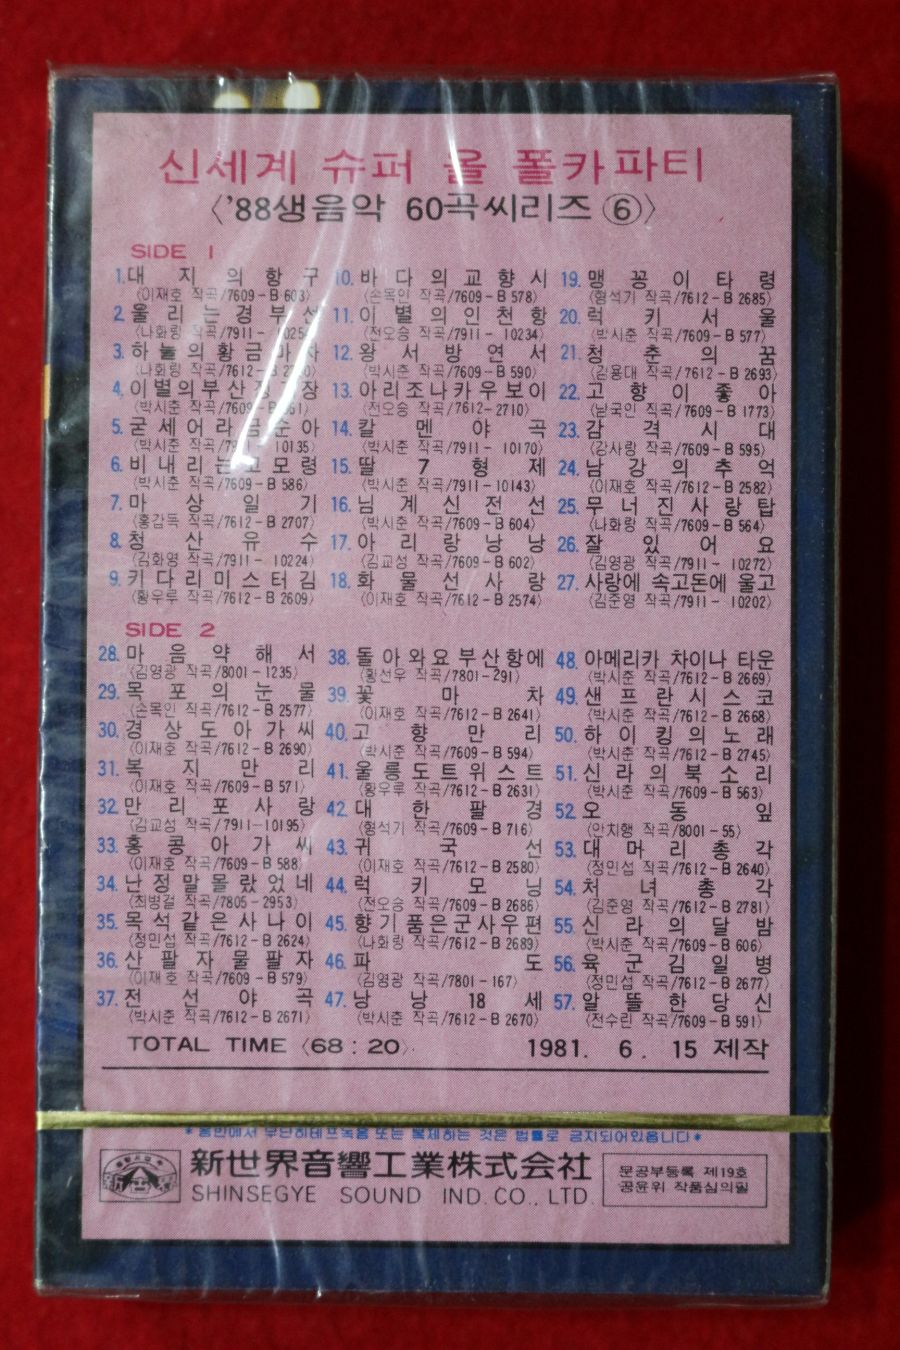 신세계 슈퍼 올 폴카파티
〈'88생음악 60곡씨리즈 ⑥〉
SIDE 1
1. 대지의항구
〈이재호 작곡/7609-B 603〉
2. 울리는경부선
〈나화랑 작곡/7911-
3. 하늘의황금마차
〈나화랑 작곡/7612-B
4. 이별의부산정장
〈박시춘 작곡/7609-B
5. 굳세어라금순아
〈박시춘 작곡/7911-10135〉
6. 비내리는고모령
〈박시춘 작곡/7609-B 586〉
7. 마상일기
〈홍갑득 작곡/7612-B 2707〉
8. 청산유수
〈김화영 작곡/7911-10224〉
9. 키다리미스터김
〈황우루 작곡/7612-B 2609〉
10. 바다의교향시
〈손목인 작곡/7609-B 578〉
11. 이별의인천항
〈전오승 작곡/7911-10234〉
12. 왕서방연서
〈박시춘 작곡/7609-B 590〉
13. 아리조나카우보이
〈전오승 작곡/7612-2710〉
14. 칼멘야곡
〈박시춘 작곡/7911-10170〉
15. 딸7형제
〈박시춘 작곡/7911-10143〉
16. 님계신전선
〈박시춘 작곡/7609-B 604〉
17. 아리랑낭낭
〈김교성 작곡/7609-B 602〉
18. 화물선사랑
〈이재호 작곡/7612-B 2574〉
19. 맹꽁이타령
〈형석기 작곡/7612-B 2685〉
20. 럭키서울
〈박시춘 작곡/7609-B 577〉
21. 청춘의꿈
〈김용대 작곡/7612-B 2693〉
22. 고향이좋아
〈남국인 작곡/7609-B 1773〉
23. 감격시대
〈강사랑 작곡/7609-B 595〉
24. 남강의추억
〈이재호 작곡/7612-B 2582〉
25. 무너진사랑탑
〈나화랑 작곡/7609-B 564〉
26. 잘있어요
〈김영광 작곡/7911-10272〉
27. 사랑에 속고돈에 울고
〈김준영 작곡/7911-10202〉
SIDE 2
28. 마음약해서
〈김영광 작곡/8001-1235〉
29. 목포의눈물
〈손목인 작곡/7612-B 2577〉
30. 경상도아가씨
〈이재호 작곡/7612-B 2690〉
31. 복지만리
〈이재호 작곡/7609-B 571〉
32. 만리포사랑
〈김교성 작곡/7911-10195〉
33. 홍콩아가씨
〈이재호 작곡/7609-B 588〉
34. 난정말몰랐었네
〈최병걸 작곡/7805-2953〉
35. 목석같은사나이
〈정민섭 작곡/7612-B 2624〉
36. 산팔자물팔자
〈이재호 작곡/7609-B 579〉
37. 전선야곡
〈박시춘 작곡/7612-B 2671〉
38. 돌아와요부산항에
〈황선우 작곡/7801-291〉
39. 꽃마차
〈이재호 작곡/7612-B 2641〉
40. 고향만리
〈박시춘 작곡/7609-B 594〉
41. 울릉도트위스트
〈황우루 작곡/7612-B 2631〉
42. 대한팔경
〈형석기 작곡/7609-B 716〉
43. 귀국선
〈이재호 작곡/7612-B 2580〉
44. 럭키모닝
〈전오승 작곡/7609-B 2686〉
45. 향기품은군사우편
〈나화랑 작곡/7612-B 2689〉
46. 파도
〈김영광 작곡/7801-167〉
47. 낭낭18세
〈박시춘 작곡/7612-B 2670〉
48. 아메리카 차이나 타운
〈박시춘 작곡/7612-B 2669〉
49. 샌프란시스코
〈박시춘 작곡/7612-B 2668〉
50. 하이킹의노래
〈박시춘 작곡/7612-B 2745〉
51. 신라의북소리
〈박시춘 작곡/7609-B 563〉
52. 오동잎
〈안치행 작곡/8001-55〉
53. 대머리총각
〈정민섭 작곡/7612-B 2640〉
54. 처녀총각
〈김준영 작곡/7612-B 2781〉
55. 신라의달밤
〈박시춘 작곡/7609-B 606〉
56. 육군김일병
〈정민섭 작곡/7612-B 2677〉
57. 알뜰한당신
〈전수린 작곡/7609-B 591〉
TOTAL TIME 〈68:20〉
1981. 6. 15 제작
*음반에서 무단히테프녹음 또는 복제하는 것은 법률로 금지되어있읍니다*
新世界音響工業株式会社
SHINSEGYE SOUND IND. CO., LTD.
문공부등록 제19호
공윤위 작품심의필